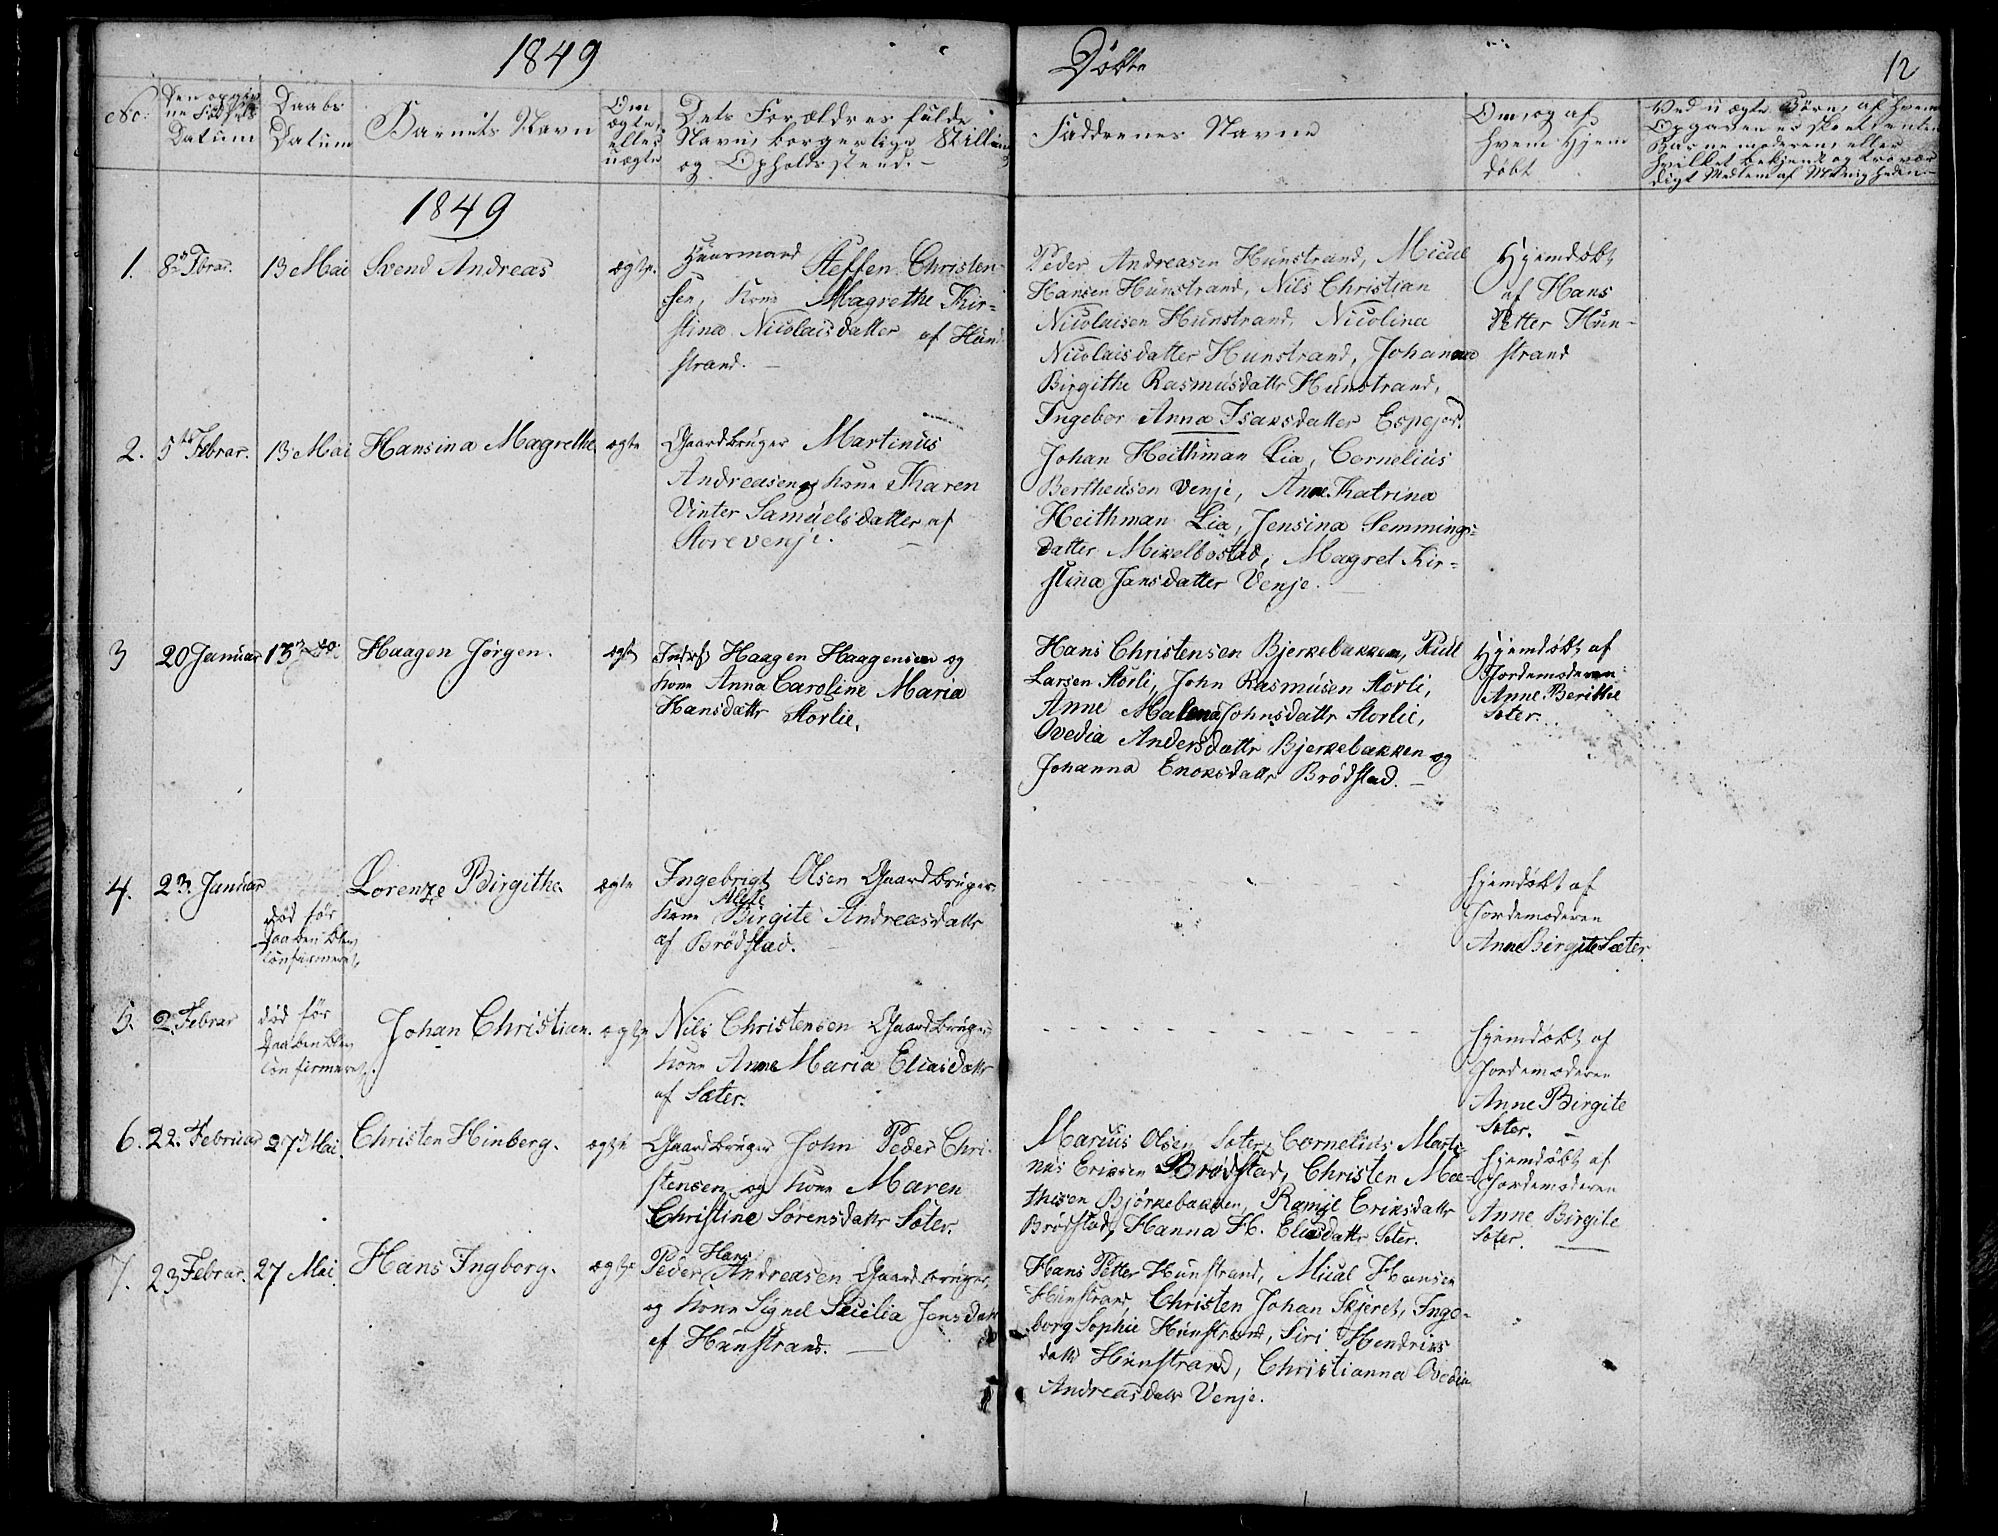 1849
Døbte
12
No.
Den opgiv
ne Fødsels
Datum
Daabs
Datum
Barnets Navn
Om
ægte,
eller
uægte
Dets Forældres fulde
Navn, borgerlige Stilling
og Opholdsstend.
Faddrenes Navne
Om, og af
hvem Hjem
døbt
Ved uægte Børn, af hvem
Opgaven er skeet enten
Barnemoderen, eller
hvilket bekjent og trovær
digt Medlem af Menigheden
1849
1.
8de Fbrar.
13 Mai
Svend Andreas
ægte.
Huusmand Steffen Christen-
sen, Kone Magrethe Kir-
stina Nicolaisdatter af Hun
strand.
Peder Andreasen Hunstrand, Micael
Hansen Hunstrand, Nils Christian
Nicolaisen Hunstrand, Nicolina
Nicolaisdatter Hunstrand, Johanna
Birgithe Rasmusdattr Hunstrand,
Ingebor Anna Isaksdatter Espejord.
Hjemdøbt
af Hans
Petter Hun-
strand
2.
5te Febrar.
13 Mai
Hansina Magrethe
ægte
Gaardbruger Martinus
Andreasen og Kone Karen
Vinter Samuelsdatter af
Storevenje.
Johan Heithman Lia, Cornelius
Bertheusen Venje, Ane Katrina
Heithman Lia, Jensina Semmings-
datter Mikelbostad, Magret Kir-
stina Jansdatter Venje.
3
20 Januar
13 do
Haagen Jørgen.
ægte
Haagen Haagensen og
Kone Anna Caroline Maria
Hansdattr Storlie.
Hans Christensen Bjerkebakken,
Larsen Storli, John Rasmusen Storli,
Anne Malena Johnsdattr Storlie,
Ovedia Andersdattr Bjerkebakken og
Johanna Enoksdattr Brødstad.
Hjemdøbt af
Jordemoderen
Anne Berithe
Sæter.
4.
23. Januar
død før
Daaben blev
Confirmeret.
Lorenze Birgithe.
ægte
Ingebrigt Olsen Gaardbruger
Kone Alete Birgite Andreasdattr
af Brødstad.
Hjemdøbt af
Jordemoderen
Anne Birgite Sæter.
5.
2. Febrar
død før
Daaben blev
Confirmeret.
Johan Christian.
ægte
Nils Christensen Gaardbruger
Kone Anne Maria Eliasdattr
af Sæter.
Hjemdøbt af
Jordemoderen
Anne Birgite
Sæter.
6.
22. Februar
27 Mai.
Christen Hinberg.
ægte
Gaardbruger John Peder Chri-
stensen og Kone Maren
Christine Sørensdattr Sæter.
Marius Olsen Sæter, Cornelius Marti-
nus Eriksen Brødstad, Christen Ma-
thisen Bjørkebakken, Ramje Eriksdattr
Brødstad, Hanna H. Eliasdattr Sæter.
Hjemdøbt af
Jordemoderen
Anne Birgite
Sæter.
7.
23 Febrar.
27 Mai
Hans Ingborg.
ægte
Peder Hans Andreasen Gaardbruger,
og Kone Signel Secilia Jensdattr
af Hunstrand.
Hans Petter Hunstrand, Micael Hansen
Hunstrand, Christen Johan Skjeret, Inge-
borg Sophie Hunstrand, Siri Hendriks
dattr Hunstrand, Christianna Ovedia
Andreasdattr Venje.